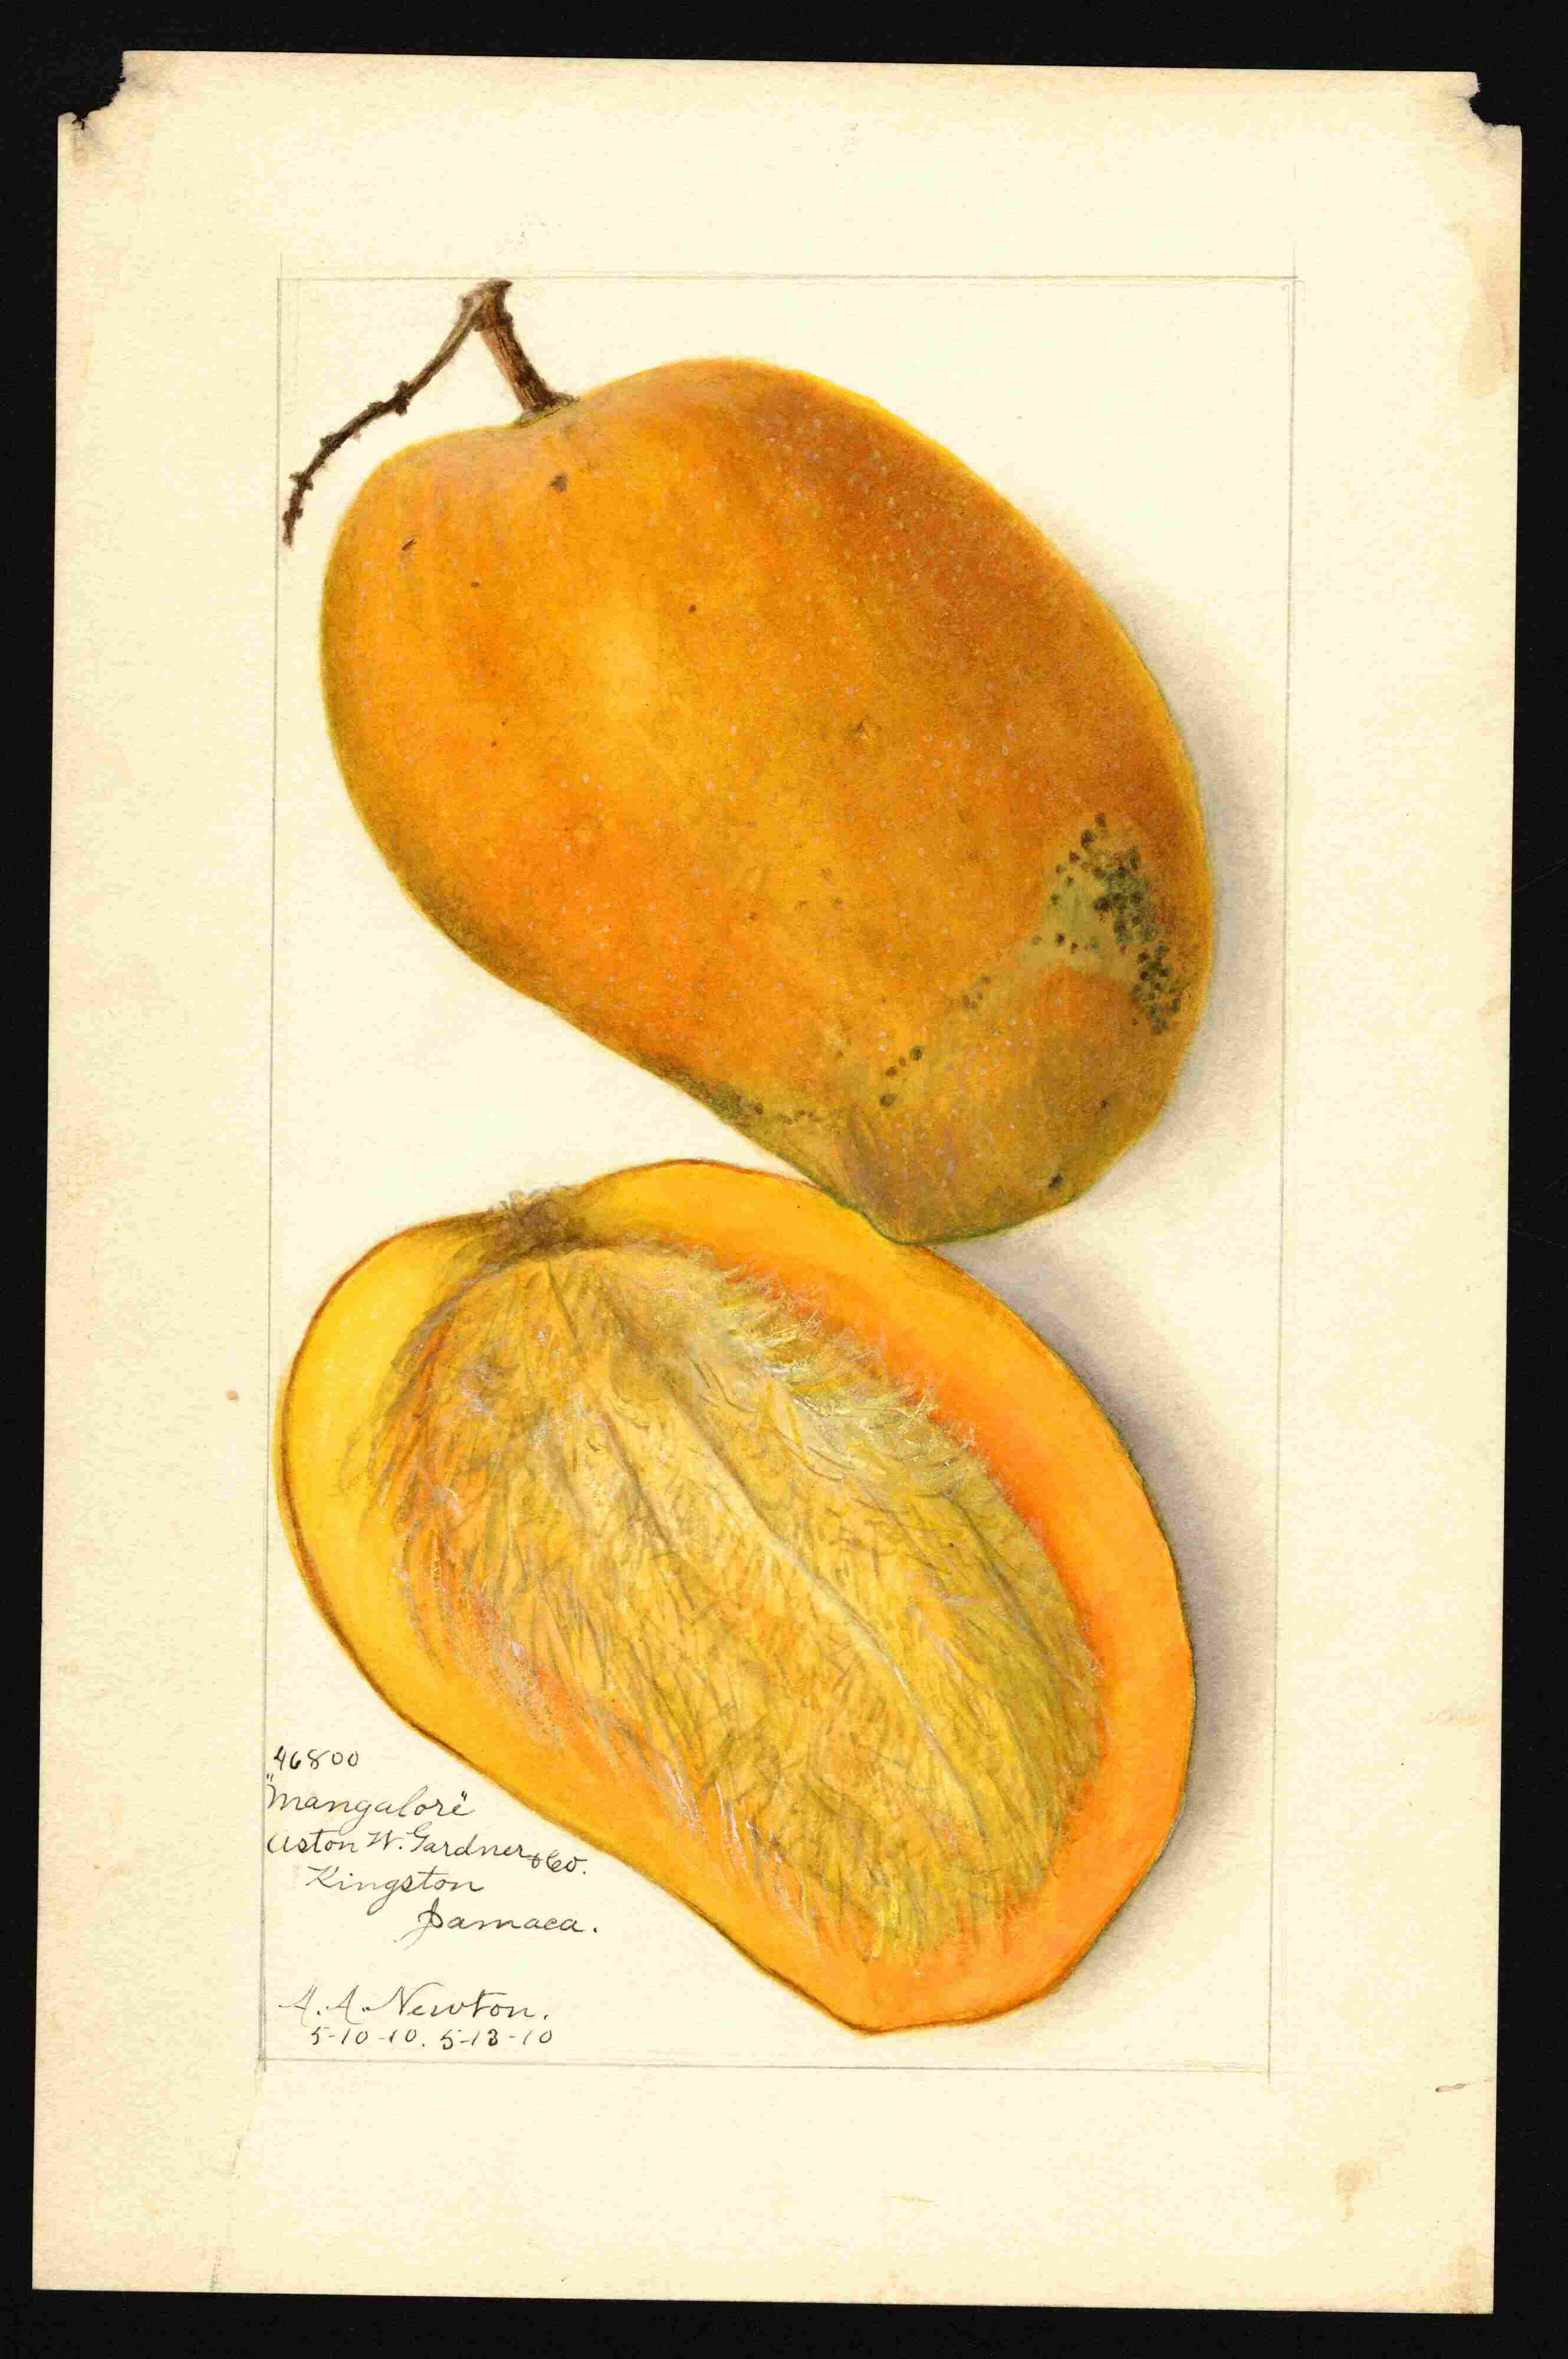 46800
"Mangalore"
Aston W. Gardner & Co.
Kingston
Jamaca.
A. A. Newton.
5-10-10. 5-13-10